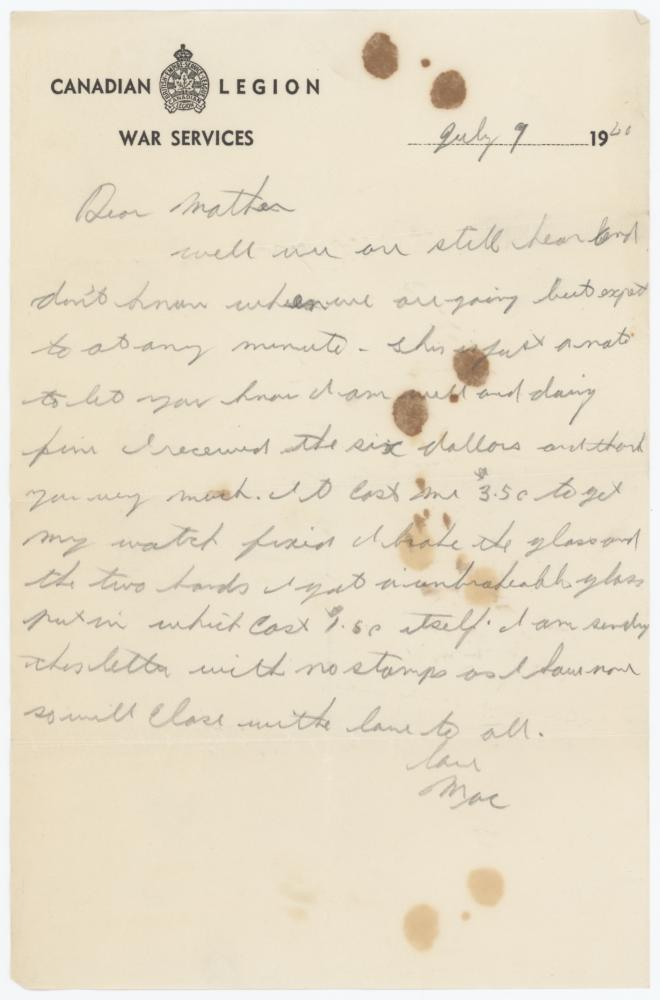 CANADIAN LEGION
WAR SERVICES
July 9 1940
Dear Mother
well we are still hear and
don't know when we are going but expect
to at any minute - this is just a note
to let you know I am well and doing
fine I received the six dollars and thank
you very much. It cost me $3.50 to get
my watch fixed I broke the glass and
the two hands I got a unbreakable glass
put in which cost $1.50 itself. I am sending
this letter with no stamps as I have none
so will close with love to all.
love
Mac